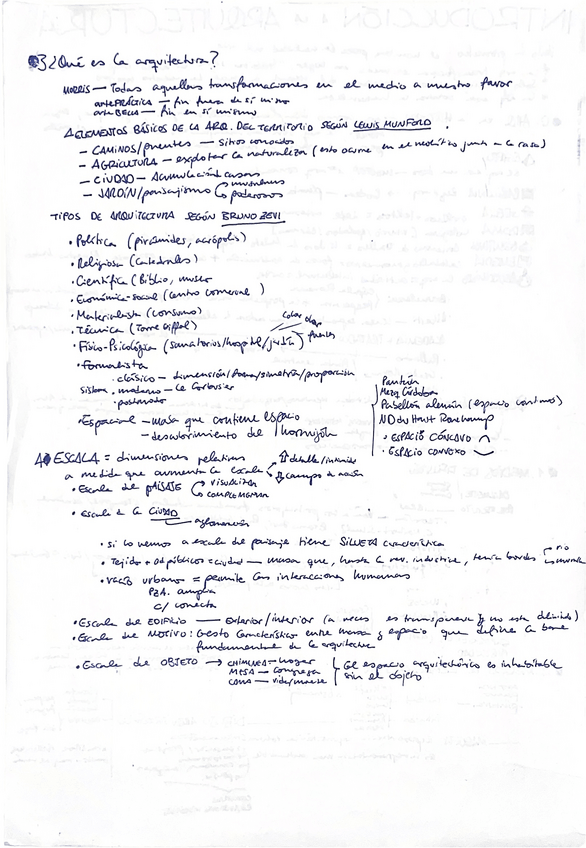 3 ¿Qué es la arquitectura?
MORRIS — Todas aquellas transformaciones en el medio a nuestro favor
arte PRÁCTICA — fin fuera de sí mismo
arte BELLA — fin en sí mismo
4 ELEMENTOS BÁSICOS DE LA ARQ. DEL TERRITORIO SEGÚN LEWIS MUNFORD
– CAMINOS/puentes — sitios conocidos
– AGRICULTURA — explotar la naturaleza (esto ocurre en el neolítico junto a la casa)
– CIUDAD — Acumulación casas
– JARDÍN/paisajismo poderosos
TIPOS DE ARQUITECTURA SEGÚN BRUNO ZEVI
• Política (pirámides, acrópolis)
• Religiosa (catedrales)
• Científica (Biblio, museo
• Económica-social (centro comercial)
• Materialista (consumo)
• Técnica (Torre Eiffel)
• Físico-Psicológica (sanatorios/hospital/jardín) color olor fuentes
• Formalista
. clásico — dimensión/forma/simetría/proporción
. moderno — Le Corbusier
• Espacial — masa que contiene espacio
— descubrimiento del hormigón
Panteón
Mezq Córdoba
Pabellón alemán (espacio continuo)
ND du Haut Ronchamp
• ESPACIO CÓNCAVO
• ESPACIO CONVEXO
4 ESCALA = dimensiones relativas
a medida que aumenta la escala ⇑ detalle
⇓ campo de
• Escala del PAISAJE visualizan
COMPLEMENTAN
• Escala de la CIUDAD
aglomeración
• si lo vemos a escala de paisaje tiene SILUETA característica
• Tejido + públicos = ciudad — masa que, hasta la rev. industrial, tenía bordes no
• vacío urbano = permite las interacciones humanas
PZA. amplia
C/ conecta
• Escala de EDIFICIO — Exterior/interior (a veces es transparente y no está delimitado)
• Escala de MOTIVO: Gesto característico entre masa y espacio que define la base
fundamental de la arquitectura
• Escala de OBJETO → CHIMENEA — hogar
MESA — congrega
CAMA —
El espacio arquitectónico es inhabitable
sin el objeto